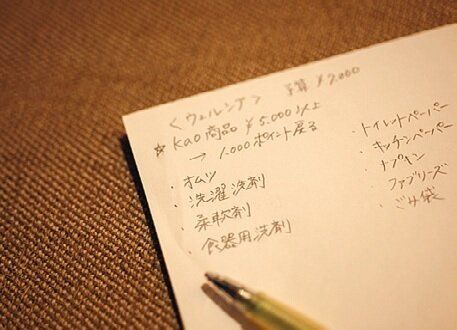 〈ウェルシア〉 予算 ¥7,000
☆ kao商品 ¥5,000以上
→ 1,000ポイント戻る
・オムツ
・洗濯洗剤
・柔軟剤
・食器用洗剤
・トイレットペーパー
・キッチンペーパー
・ナプキン
・ファブリーズ
・ごみ袋